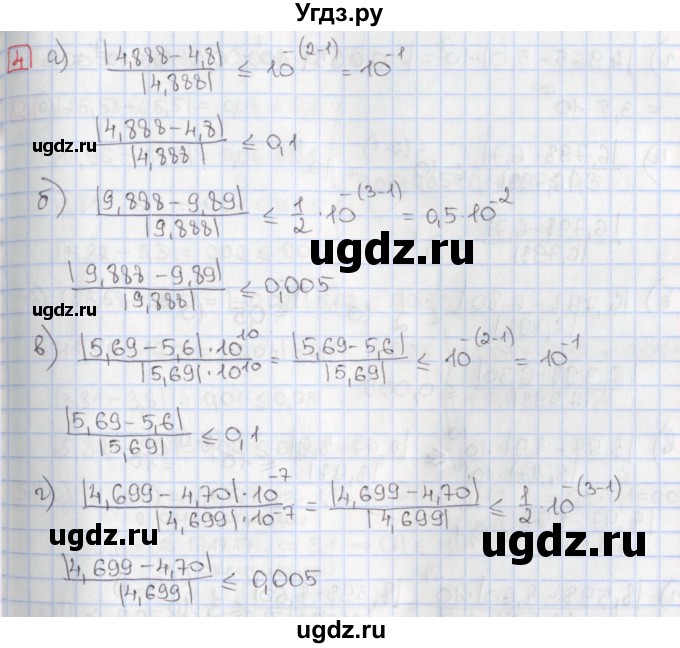 Угдз.ру
4 а) |4,888 − 4,8| / |4,888| ≤ 10^-(2-1) = 10^-1
|4,888 − 4,8| / |4,888| ≤ 0,1
ugdz.ru ugdz.ru
б) |9,888 − 9,89| / |9,888| ≤ 1/2 · 10^-(3-1) = 0,5 · 10^-2
ugdz.ru
|9,888 − 9,89| / |9,888| ≤ 0,005
ugdz.ru
в) |5,69 − 5,6| · 10^10 / |5,69| · 10^10 = |5,69 − 5,6| / |5,69| ≤ 10^-(2-1) = 10^-1
ugdz.ru
|5,69 − 5,6| / |5,69| ≤ 0,1
г) |4,699 − 4,70| · 10^-7 / |4,699| · 10^-7 = |4,699 − 4,70| / |4,699| ≤ 1/2 · 10^-(3-1)
ugdz.ru ugdz.ru
|4,699 − 4,70| / |4,699| ≤ 0,005
ugdz.ru